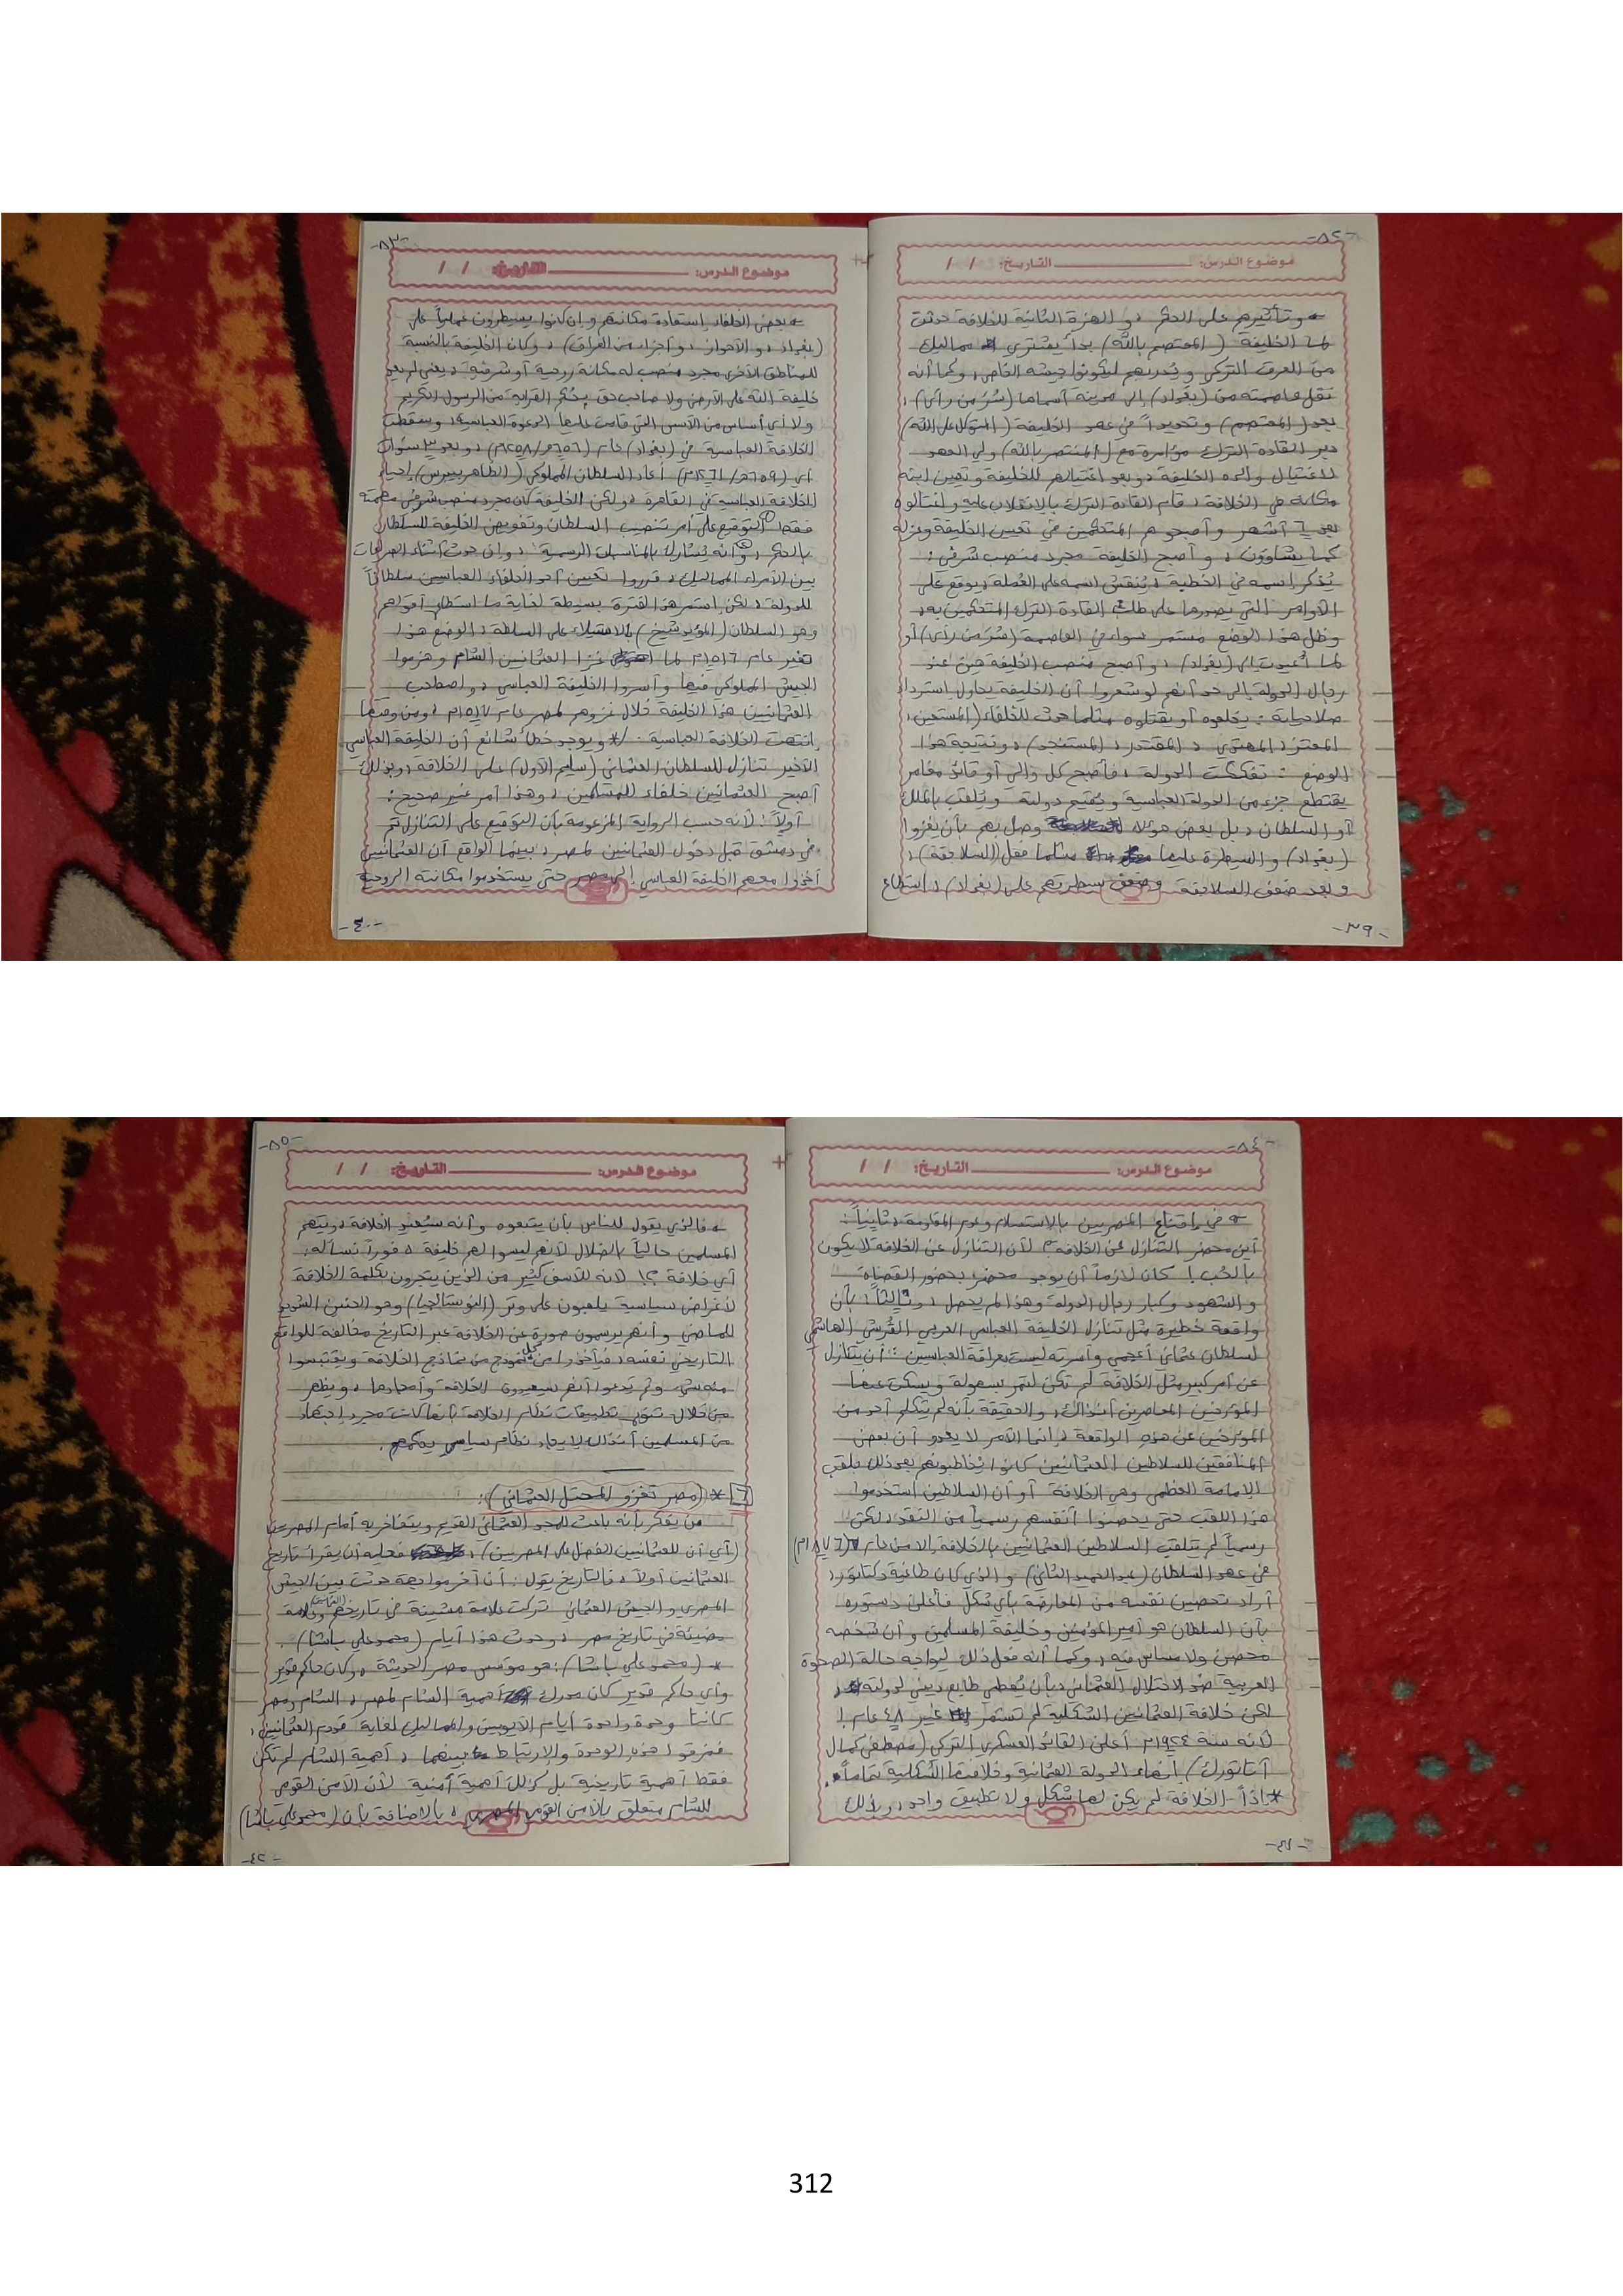 -٥٢-
موضوع الدرس: التاريخ: / /
وتأثيرهم على الحكم، و الهزة الثانية للخلافة حدثت
لما الخليفة (المعتصم بالله) بدأ يشتري مماليك
من العرق التركي ويُدربهم ليكونوا جيشه الخاص، وكما أنه
نقل عاصمته من (بغداد) إلى مدينة أسماها (سُرَّ من رأى)،
بعد (المعتصم) وتحديداً في عهد الخليفة (المتوكل على الله)
دبر القادة الترك مؤامرة مع (المنتصر بالله) ولي العهد
لاغتيال والده الخليفة، وبعد اغتيالهم للخليفة وتعيين ابنه
مكانه في الخلافة، قام القادة الترك بالانقلاب عليه واغتالوه
بعد ٦ أشهر وأصبحوا هم المتحكمين في تعيين الخليفة وعزله
كما يشاؤون، وأصبح الخليفة مجرد منصب شرفي:
يُذكر اسمه في الخطبة، يُنقش اسمه على العُملة، يوقع على
الأوامر التي يصدرها على طلب القادة الترك المتحكمين به،
وظل هذا الوضع مستمر سواء في العاصمة (سُرَّ من رأى) أو
لما أُعيدت إلى (بغداد)، وأصبح منصب الخليفة هيّن عند
رجال الدولة إلى حد أنهم لو شعروا أن الخليفة يحاول استرداد
صلاحياته: يخلعوه أو يقتلوه مثلما حدث للخلفاء (المستعين،
المعتز، المهتدي، المقتدر، المستنجد)، ونتيجة هذا
الوضع: تفككت الدولة، فأصبح كل والي أو قائد مغامر
يقتطع جزء من الدولة العباسية ويُقيم دولته ويُلقب بالملك
أو السلطان، بل بعض هؤلاء وصل بهم بأن يغزوا
(بغداد) والسيطرة عليها مثلما فعل (السلاجقة)،
وبعد ضعف السلاجقة وضعف سيطرتهم على (بغداد)، استطاع
-٣٩-
-٥٣-
موضوع الدرس: التاريخ: / /
بعض الخلفاء استعادة مكانتهم وإن كانوا يسيطرون عملياً على
(بغداد، والأحواز، وأجزاء من العراق)، وكان الخليفة بالنسبة
للمناطق الأخرى مجرد منصب له مكانة روحية أو شرفية، يعني لم يعد
خليفة الله على الأرض ولا صاحب حق بحُكم القرابة من الرسول الكريم
ولا أي أساس من الأسس التي قامت عليها الدعوة العباسية، وسقطت
الخلافة العباسية في (بغداد) عام (٦٥٦هـ/١٢٥٨م)، وبعد ٣ سنوات
أي (٦٥٩هـ/١٢٦١م) أعاد السلطان المملوكي (الظاهر بيبرس) إحياء
الخلافة العباسية في القاهرة، ولكن الخليفة كان مجرد منصب شرفي مهمته
فقط: ①التوقيع على أمر تنصيب السلطان وتفويض الخليفة للسلطان
بالحكم، ②وأنه يُشارك بالمناسبات الرسمية، وإن حدث أثناء الصراعات
بين الأمراء المماليك، قرروا تعيين أحد الخلفاء العباسيين سلطاناً
للدولة، لكن استمر هذا لفترة بسيطة لغاية ما استطاع أقواهم
وهو السلطان (المؤيد شيخ) بالاستيلاء على السلطة، الوضع هذا
تغير عام ١٥١٦م لما غزا العثمانيين الشام وهزموا
الجيش المملوكي فيها وأسروا الخليفة العباسي، واصطحب
العثمانيين هذا الخليفة خلال غزوهم لمصر عام ١٥١٧م، ومن وقتها
انتهت الخلافة العباسية. /* ويوجد خطأ شائع أن الخليفة العباسي
الأخير تنازل للسلطان العثماني (سليم الأول) على الخلافة، وبذلك
أصبح العثمانيين خلفاء للمسلمين، وهذا أمر غير صحيح:
أولاً: لأنه حسب الرواية المزعومة بأن التوقيع على التنازل تم
في دمشق قبل دخول العثمانيين لمصر، بينما الواقع أن العثمانيين
أخذوا معهم الخليفة العباسي إلى مصر حتى يستخدموا مكانته الروحية
-٤٠-
-٥٤-
موضوع الدرس: التاريخ: / /
في إقناع المصريين بالاستسلام وعدم المقاومة، ثانياً:
أين محضر التنازل عن الخلافة؟ لأن التنازل عن الخلافة لا يكون
بالحُب! كان لازماً أن يوجد محضر بحضور القضاة
والشهود وكبار رجال الدولة وهذا لم يحصل، وثالثاً: بأن
واقعة خطيرة مثل تنازل الخليفة العباسي العربي القُرشي الهاشمي
لسلطان عثماني أعجمي وأسرته ليست بعراقة العباسيين: أن يتنازل
عن أمر كبير مثل الخلافة لم تكن لتمر بسهولة ويسكت عنها
المؤرخين المعاصرين آنذاك، والحقيقة بأنه لم يتكلم أحد من
المؤرخين عن هذه الواقعة، إنما الأمر لا يعدو أن بعض
المنافقين للسلاطين العثمانيين كانوا يُخاطبونهم بعد ذلك بلقب
الإمامة العظمى وهي الخلافة أو أن السلاطين استخدموا
هذا اللقب حتى يحصنوا أنفسهم رسمياً من النقد، لكن
رسمياً لم يتلقب السلاطين العثمانيين بالخلافة إلا من عام (١٨٧٦م)
في عهد السلطان (عبد الحميد الثاني) والذي كان طاغية دكتاتور،
أراد تحصين نفسه من المعارضة بأي شكل فأعلن دستوره
بأن السلطان هو أمير المؤمنين وخليفة المسلمين وأن شخصه
محصن ولا مساس فيه، وكما أنه فعل ذلك ليواجه حالة الصحوة
العربية ضد الاحتلال العثماني بأن يُعطي طابع ديني لدولته،
لكن خلافة العثمانيين الشكلية لم تستمر غير ٤٨ عام!
لأنه سنة ١٩٢٤م أعلن القائد العسكري التركي (مصطفى كمال
أتاتورك) إنهاء الدولة العثمانية وخلافتها الشكلية تماماً.
*إذاً الخلافة لم يكن لها شكل ولا تطبيق واحد، وبذلك
-٤١-
-٥٥-
موضوع الدرس: التاريخ: / /
فالذي يقول للناس بأن يتبعوه وأنه سيُعيد الخلافة، ويتهم
المسلمين حالياً بالضلال لأنهم ليسوا لهم خليفة، فوراً تسأله:
أي خلافة؟! لأنه للأسف كثير من الذين يتجرون بكلمة الخلافة
لأغراض سياسية يلعبون على وتر (النوستالجيا) وهو الحنين الشديد
للماضي وأنهم يرسمون صورة عن الخلافة عبر التاريخ مخالفة للواقع
التاريخي نفسه، فيأخذوا من كل نموذج من نماذج الخلافة ويقتبسوا
منه شيء ثم يدعوا أنهم سيعيدون الخلافة وأمجادها، ويظهر
من خلال تنوع تطبيقات نظام الخلافة بأنها كانت مجرد اجتهاد
من المسلمين آنذاك لإيجاد نظام سياسي يحكمهم.
٦ * (مصر تغزو المحتل العثماني):
من يفكر بأنه باحث للمجد العثماني القديم ويتفاخر به أمام المصريين
(أي أن للعثمانيين الفضل على المصريين)، فعليه أن يقرأ تاريخ
العثمانيين أولاً، فالتاريخ يقول: أن آخر مواجهة حدثت بين الجيش
المصري والجيش العثماني تركت علامة مشينة في تاريخهم وعلامة
مضيئة في تاريخ مصر، وحدث هذا أيام (محمد علي باشا).
* (محمد علي باشا): هو مؤسس مصر الحديثة، وكان حاكم قدير
وأي حاكم قدير كان مدرك أهمية الشام لمصر، الشام ومصر
كانتا وحدة واحدة أيام الأيوبيين والمماليك لغاية قدوم العثمانيين،
فمزقوا هذه الوحدة والارتباط بينهما، أهمية الشام لم تكن
فقط أهمية تاريخية بل كذلك أهمية أمنية لأن الأمن القومي
للشام متعلق بالأمن القومي المصري، بالإضافة بأن (محمد علي باشا)
-٤٢-
312